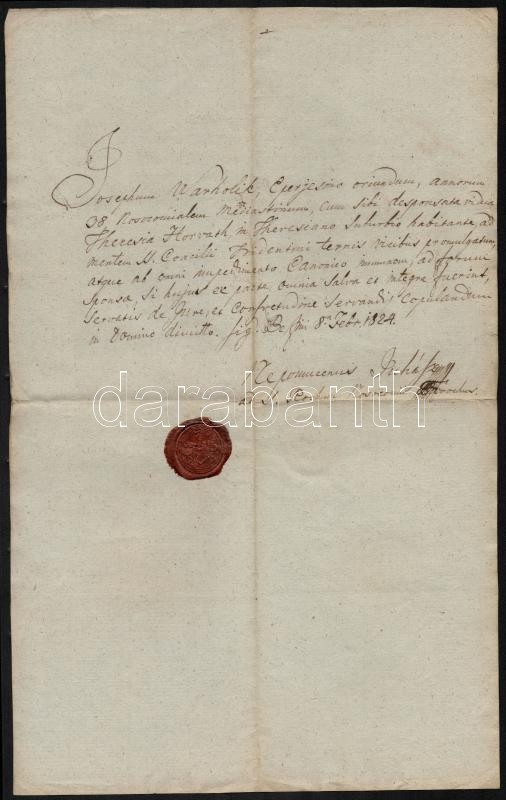 Josephum Warholik, Eperjesino oriundum, annorum
38 Nosocomialem Mediastinum, cum sibi desponsata vidua
Theresia Horvath in Theresiano Suburbio habitante, ad
mentem SS. Concilii Tridentini ternis vicibus promulgatum,
atque ab omni impedimento Canonico immunem, ad forum
Sponsa, si hujus ex parte, omnia salva et integra fuerint,
servatis de Jure, et Consvetudine servandis Copulandum
in Domino dimitto. Sig. Pestini 8ª Febr. 1824.
Nepomucenus Juhász
ad S. Parochus.
darabanth